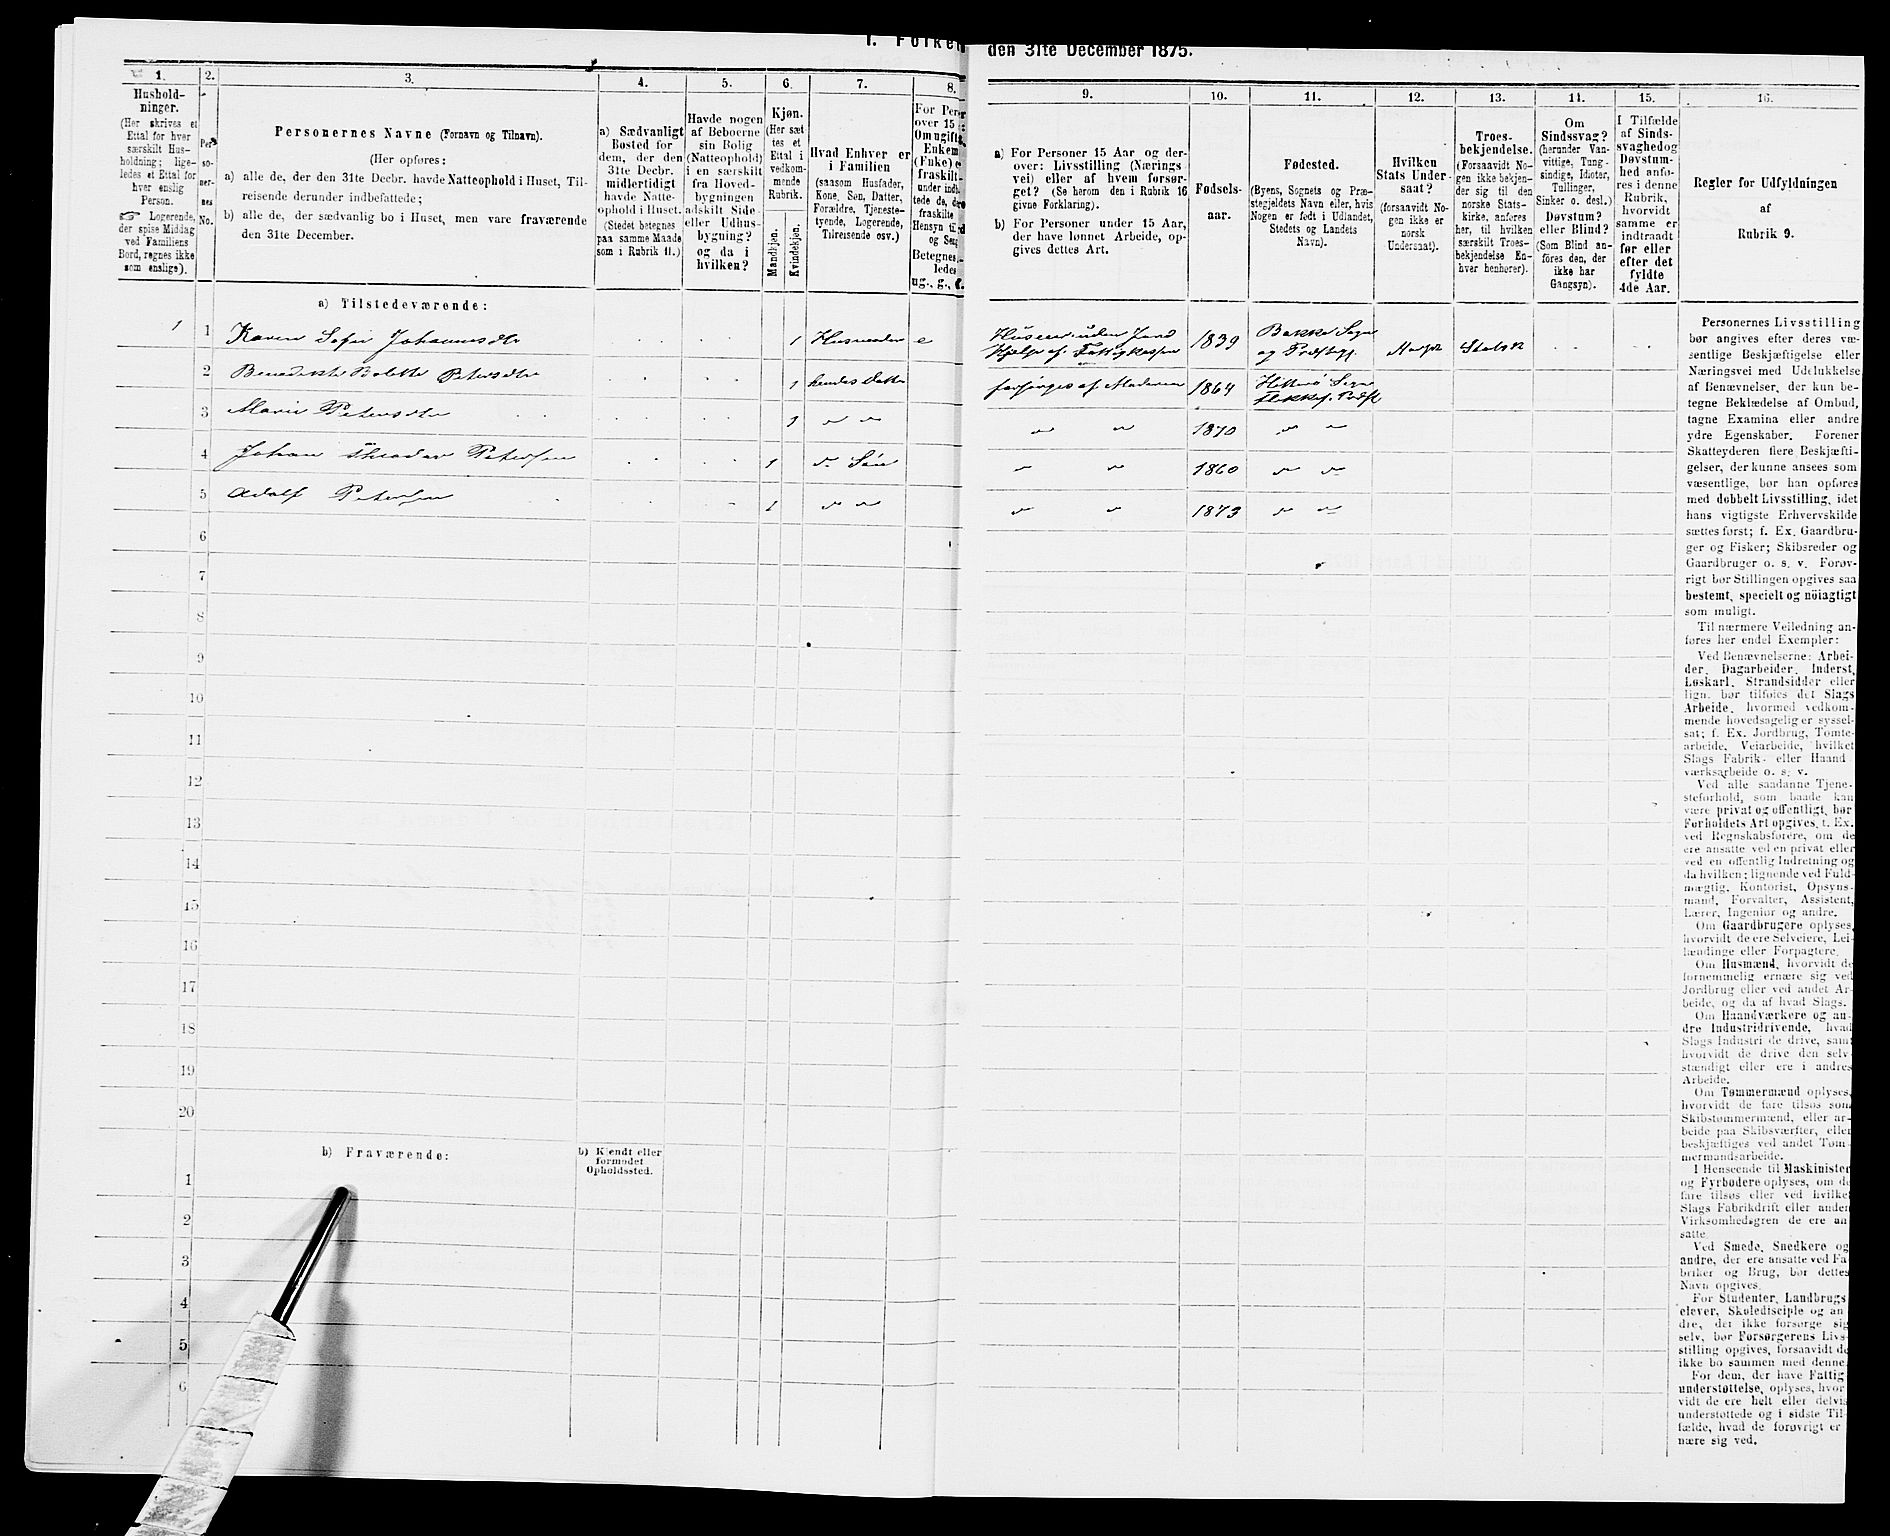 1. Folke den 31te December 1875.
1. 2. 3. 4. 5. 6. 7. 8. 9. 10. 11. 12. 13. 14. 15. 16.
Hushold-
ninger.
(Her skrives et
Ettal for hver
særskilt Hus-
holdning; lige-
ledes et Ettal for
hver enslig
Person.
☞ Logerende,
der spise Middag
ved Familiens
Bord, regnes ikke
som enslige).
Per-
so-
ner-
nes
No.
Personernes Navne (Fornavn og Tilnavn).
(Her opføres:
a) alle de, der den 31te Decbr. havde Natteophold i Huset, Til-
reisende derunder indbefattede;
b) alle de, der sædvanlig bo i Huset, men vare fraværende
den 31te December.
a) Sædvanligt
Bosted for
dem, der den
31te Decbr.
midlertidigt
havde Natte-
ophold i Huset.
(Stedet betegnes
paa samme Maade
som i Rubrik 11.)
Havde nogen
af Beboerne
sin Bolig
(Natteophold)
i en særskilt
fra Hoved-
bygningen
adskilt Side-
eller Udhus-
bygning?
og da i
hvilken?
Kjøn.
(Her sæt
tes et
Ettal i
vedkom-
mende
Rubrik.
Mandkjøn.
Kvindekjøn.
Hvad Enhver er
i Familien
(saasom Husfader,
Kone, Søn, Datter,
Forældre, Tjeneste-
tyende, Logerende,
Tilreisende osv.)
For Per
over 15
Om ugift
Enkem
(Fuke) e
fraskilt
under indb
tede de, d
fraskilte
Hensyn til
og Seng
Betegnes
ledes
ug., g.,
a) For Personer 15 Aar og der-
over: Livsstilling (Nærings
vei) eller af hvem forsør-
get? (Se herom den i Rubrik 16
givne Forklaring).
b) For Personer under 15 Aar,
der have lønnet Arbeide, op-
gives dettes Art.
Fødsels-
aar.
Fødested.
(Byens, Sognets og Præ-
stegjeldets Navn eller, hvis
Nogen er født i Udlandet,
Stedets og Landets
Navn).
Hvilken
Stats Under-
saat?
(forsaavidt No-
gen ikke er
norsk
Undersaat).
Troes-
bekjendelse.
(Forsaavidt No-
gen ikke bekjen-
der sig til den
norske Stats-
kirke, anføres
her, til hvilken
særskilt Troes-
bekjendelse En-
hver henhører).
Om
Sindssvag?
(herunder Van-
vittige, Tung-
sindige, Idioter,
Tullinger,
Sinker o. desl.)
Døvstum?
eller Blind?
(Som Blind an-
føres den, der
ikke har
Gangsyn).
I Tilfælde
af Sinds-
svaghedog
Døvstum-
hed anfø-
res i denne
Rubrik,
hvorvidt
samme er
indtraadt
før eller
efter det
fyldte
4de Aar.
Regler for Udfyldningen
af
Rubrik 9.
a) Tilstedeværende:
1 1 Karen Sofie Johannesdtr 1 Husmoder e Huseier uden Jord 1839 Bakke Sogn Norsk Statsk
Hjelp af Fattigkassen og Præstegj.
2 Benedikte Bolette Petersdtr 1 hendes Datter forsørges af Moderen 1864 Hitterø Sogn
Flekkef. Præst
3 Marie Petersdtr 1 " " " " 1870 " "
4 Johan Theodor Petersen 1 " Søn " " 1860 " "
5 Adolf Petersen 1 " " " " 1873 " "
6
7
8
9
10
11
12
13
14
15
16
17
18
19
20
b) Fraværende:
b) Kjendt eller
formodet
Opholdssted.
1
2
3
4
5
6
Personernes Livsstilling
bør angives efter deres væ-
sentlige Beskjæftigelse eller
Næringsvei med Udelukkelse
af Benævnelser, der kun be-
tegne Beklædelse af Ombud,
tagne Examina eller andre
ydre Egenskaber. Forener
Skatteyderen flere Beskjæfti-
gelser, der kunne ansees som
væsentlige, bør han opføres
med dobbelt Livsstilling, idet
hans vigtigste Erhvervskilde
sættes først; f. Ex. Gaardbru-
ger og Fisker; Skibsreder og
Gaardbruger o. s. v. Forøv-
rigt bør Stillingen opgives saa
bestemt, specielt og nöiagtigt
som muligt.
Til nærmere Veiledning an-
føres her endel Exempler:
Ved Benævnelserne: Arbei-
der, Dagarbeider, Inderst,
Løskarl, Strandsidder eller
lign. bør tilføies det Slags
Arbeide, hvormed vedkom-
mende hovedsagelig er syssel-
sat; f. Ex. Jordbrug, Tomte-
arbeide, Veiarbeide, hvilket
Slags Fabrik- eller Haand-
værksarbeide o. s. v.
Ved alle saadanne Tjene-
steforhold, som baade kan
være privat og offentligt, bør
Forholdets Art opgives, t. Ex.
ved Regnskabsførere, om de
ere ansatte ved en privat eller
ved en offentlig Indretning og
da hvilken; lignende ved Fuld-
mægtig, Kontorist, Opsyns-
mand, Forvalter, Assistent,
Lærer, Ingeniør og andre.
Om Gaardbrugere oplyses,
hvorvidt de ere Selveiere, Lei-
lændinge eller Forpagtere.
Om Husmænd, hvorvidt de
fornemmelig ernære sig ved
Jordbrug eller ved andet Ar-
beide, og da af hvad Slags.
Om Haandværkere og an-
dre Industridrivende, hvad
Slags Industri de drive, samt
hvorvidt de drive den selv-
stændigt eller ere i andres
Arbeide.
Om Tømmermænd oplyses,
hvorvidt de fare tilsøs som
Skibstømmermænd, eller ar-
beide paa Skibsværfter, eller
beskjæftiges ved andet Tøm-
mermandsarbeide.
I Henseende til Maskinister
og Fyrbødere oplyses, om de
fare tilsøs eller ved hvilket
Slags Fabrikdrift eller anden
Virksomhedsgren de ere an
satte.
Ved Smede, Snedkere og
andre, der ere ansatte ved Fa-
briker og Brug, bør dettes
Navn opgives.
For Studenter, Landbrugs
elever, Skoledisciple og an
dre, der ikke forsørge sig
selv, bør Forsørgerens Livs-
stilling opgives, forsaavidt de
ikke bo sammen med denne.
For dem, der have Fattig
understøttelse, oplyses, hvor
vidt de ere helt eller delvis
understøttede og i sidste Til-
fælde, hvad de forøvrigt er
nære sig ved.